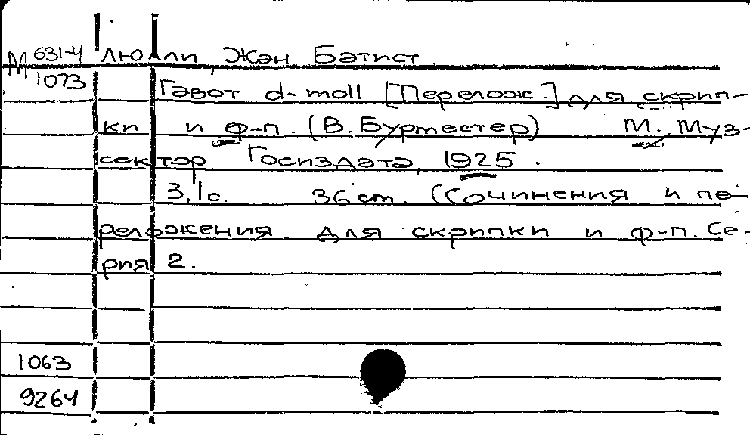 М 631-4 Люлли, Жан Батист
1073
Гавот d-moll [Перелож.] для скрип-
ки и ф-п. (В. Бурместер) М. Муз-
сектор Госиздата, 1925.
3,1с. 36 cm. (Сочинения и пе-
реложения для скрипки и ф-п. Се-
рия 2.
1063
9264